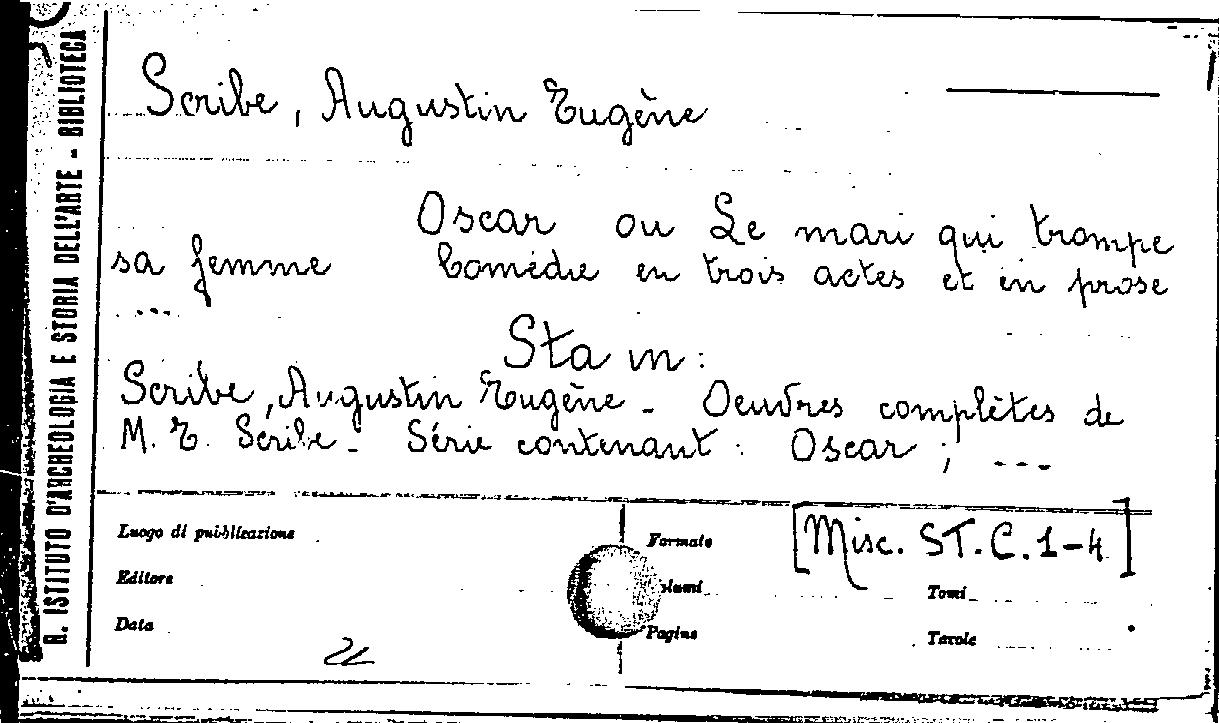 R. ISTITUTO D'ARCHEOLOGIA E STORIA DELL'ARTE - BIBLIOTECA
Scribe, Augustin Eugène
Oscar ou Le mari qui trompe
sa femme Comédie en trois actes et en prose
...
Sta in:
Scribe, Augustin Eugène - Oeuvres complètes de
M. E. Scribe - Série contenant : Oscar ; ---
Luogo di pubblicazione
Formato
[Misc. ST.C.1-4]
Editore
Volumi
Tomi
Data
Pagine
Tavole